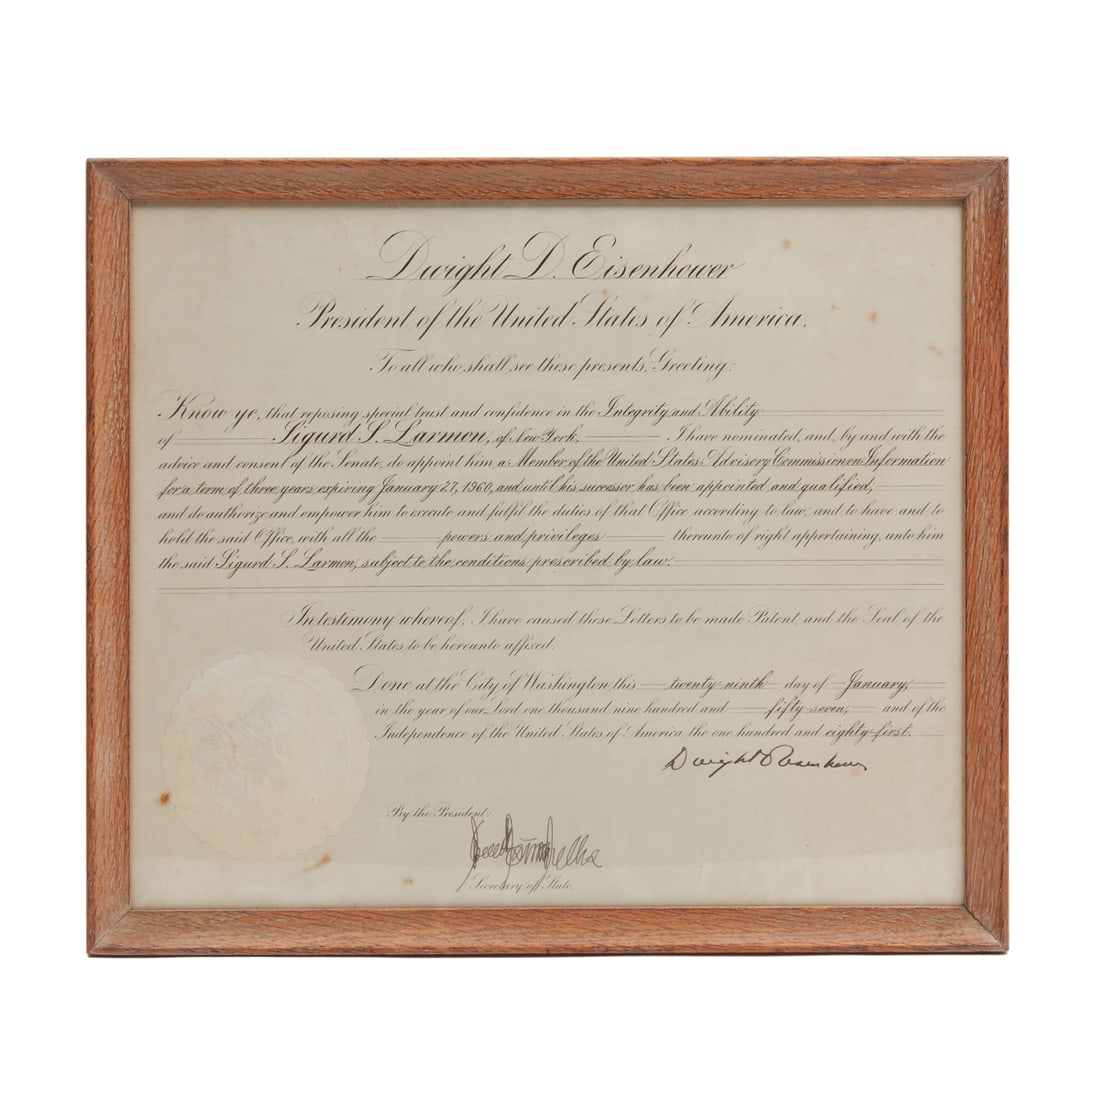 Dwight D. Eisenhower
President of the United States of America.
To all who shall see these presents, Greeting:
Know ye, that reposing special trust and confidence in the Integrity and Ability
of Sigurd S. Larmon, of New York, I have nominated, and, by and with the
advice and consent of the Senate, do appoint him a Member of the United States Advisory Commission on Information
for a term of three years expiring January 27, 1960, and until his successor has been appointed and qualified,
and do authorize and empower him to execute and fulfil the duties of that Office according to law, and to have and to
hold the said Office, with all the powers and privileges thereunto of right appertaining, unto him
the said Sigurd S. Larmon, subject to the conditions prescribed by law.
In testimony whereof, I have caused these Letters to be made Patent, and the Seal of the
United States to be hereunto affixed.
Done at the City of Washington this twenty-ninth day of January,
in the year of our Lord one thousand nine hundred and fifty-seven, and of the
Independence of the United States of America the one hundred and eighty-first.
Dwight D Eisenhower
By the President:
Secretary of State.